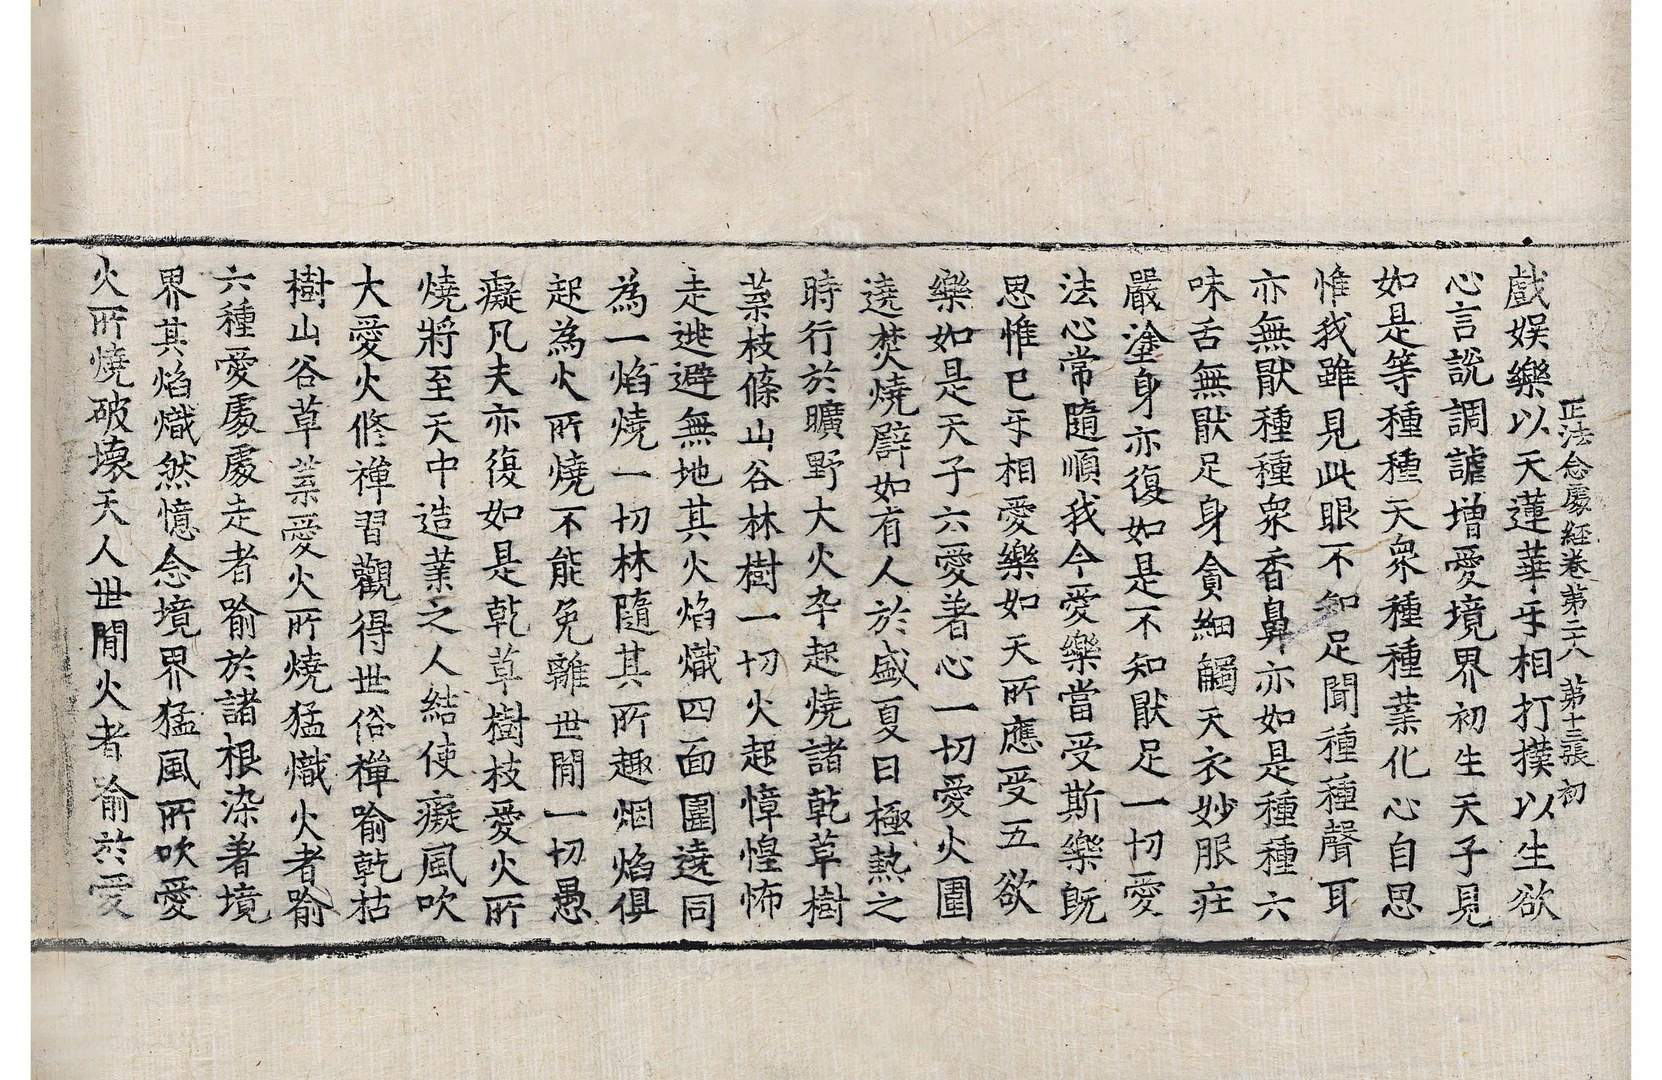 戲娛樂以天蓮華㸦相打撲以生欲
正法念處經卷第二十八 第十三張 初
心言說調謔增愛境界初生天子見
如是等種種天衆種種業化心自思
惟我雖見此眼不知足聞種種聲耳
亦無猒種種衆香鼻亦如是種種六
味舌無猒足身貪細觸天衣妙服疘
嚴塗身亦復如是不知猒足一切愛
法心常隨順我今愛樂當受斯樂旣
思惟已㸦相愛樂如天所應受五欲
樂如是天子六愛著心一切愛火圍
遶焚燒譬如有人於盛夏日極熱之
時行於曠野大火卒起燒諸乾草樹
葉枝條山谷林樹一切火起慞惶怖
走逃避無地其火焰熾四面圍遶同
為一焰燒一切林隨其所趣烟焰俱
起為火所燒不能免離世閒一切愚
癡凡夫亦復如是乾草樹枝愛火所
燒將至天中造業之人結使癡風吹
大愛火修禪習觀得世俗禪喻乾枯
樹山谷草葉愛火所燒猛熾火者喻
六種愛處處走者喻於諸根染著境
界其焰熾然憶念境界猛風所吹愛
火所燒破壞天人世閒火者喻於愛